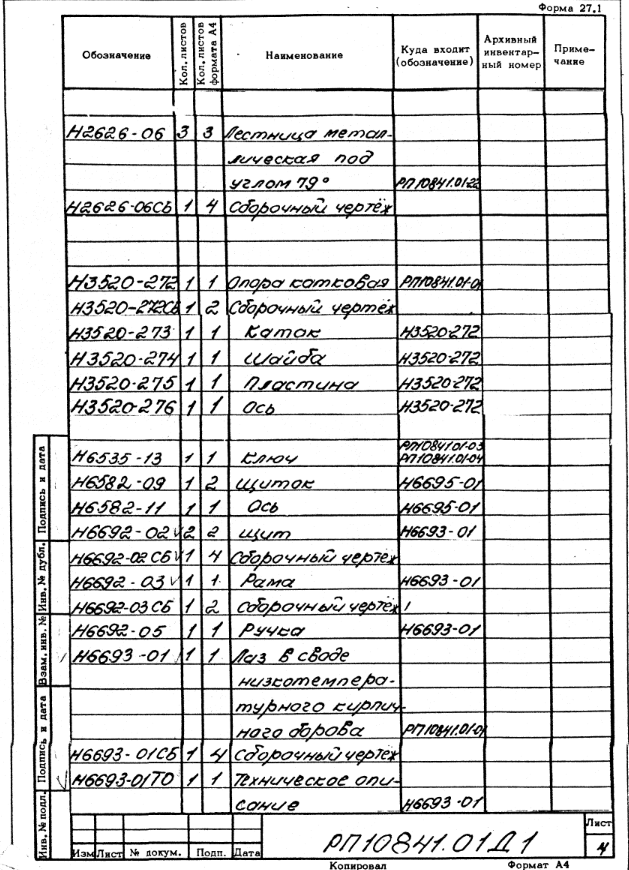 Форма 27.1
Обозначение Кол. листов Кол. листов формата А4 Наименование Куда входит (обозначение) Архивный инвентар-ный номер Приме-чание
Н2626-06 3 3 Лестница метал-
лическая под
углом 79° РП10841.01-22
Н2626-06СБ 1 4 Сборочный чертёж
Н3520-272 1 1 Опора катковая РП10841.01-01
Н3520-272СБ 1 2 Сборочный чертеж
Н3520-273 1 1 Каток Н3520-272
Н3520-274 1 1 Шайба Н3520-272
Н3520-275 1 1 Пластина Н3520-272
Н3520-276 1 1 Ось Н3520-272
РП10841.01-03
Н6535-13 1 1 Ключ РП10841.01-04
Н6582-09 1 2 Щиток Н6695-01
Н6582-11 1 1 Ось Н6695-01
Н6692-02 2 2 Щит Н6693-01
Н6692-02СБ 1 4 Сборочный чертёж
Н6692-03 1 1 Рама Н6693-01
Н6692-03СБ 1 2 Сборочный чертёж
Н6692-05 1 1 Ручка Н6693-01
Н6693-01 1 1 Лаз в своде
низкотемпера-
турного кирпич-
ного борова РП10841.01-01
Н6693-01СБ 1 4 Сборочный чертёж
Н6693-01ТО 1 1 Техническое опи-
сание Н6693-01
Инв. № подл. Подпись и дата Взам. инв. № Инв. № дубл. Подпись и дата
Изм Лист № докум. Подп. Дата
РП10841.01Д1
Лист
4
Копировал Формат А4